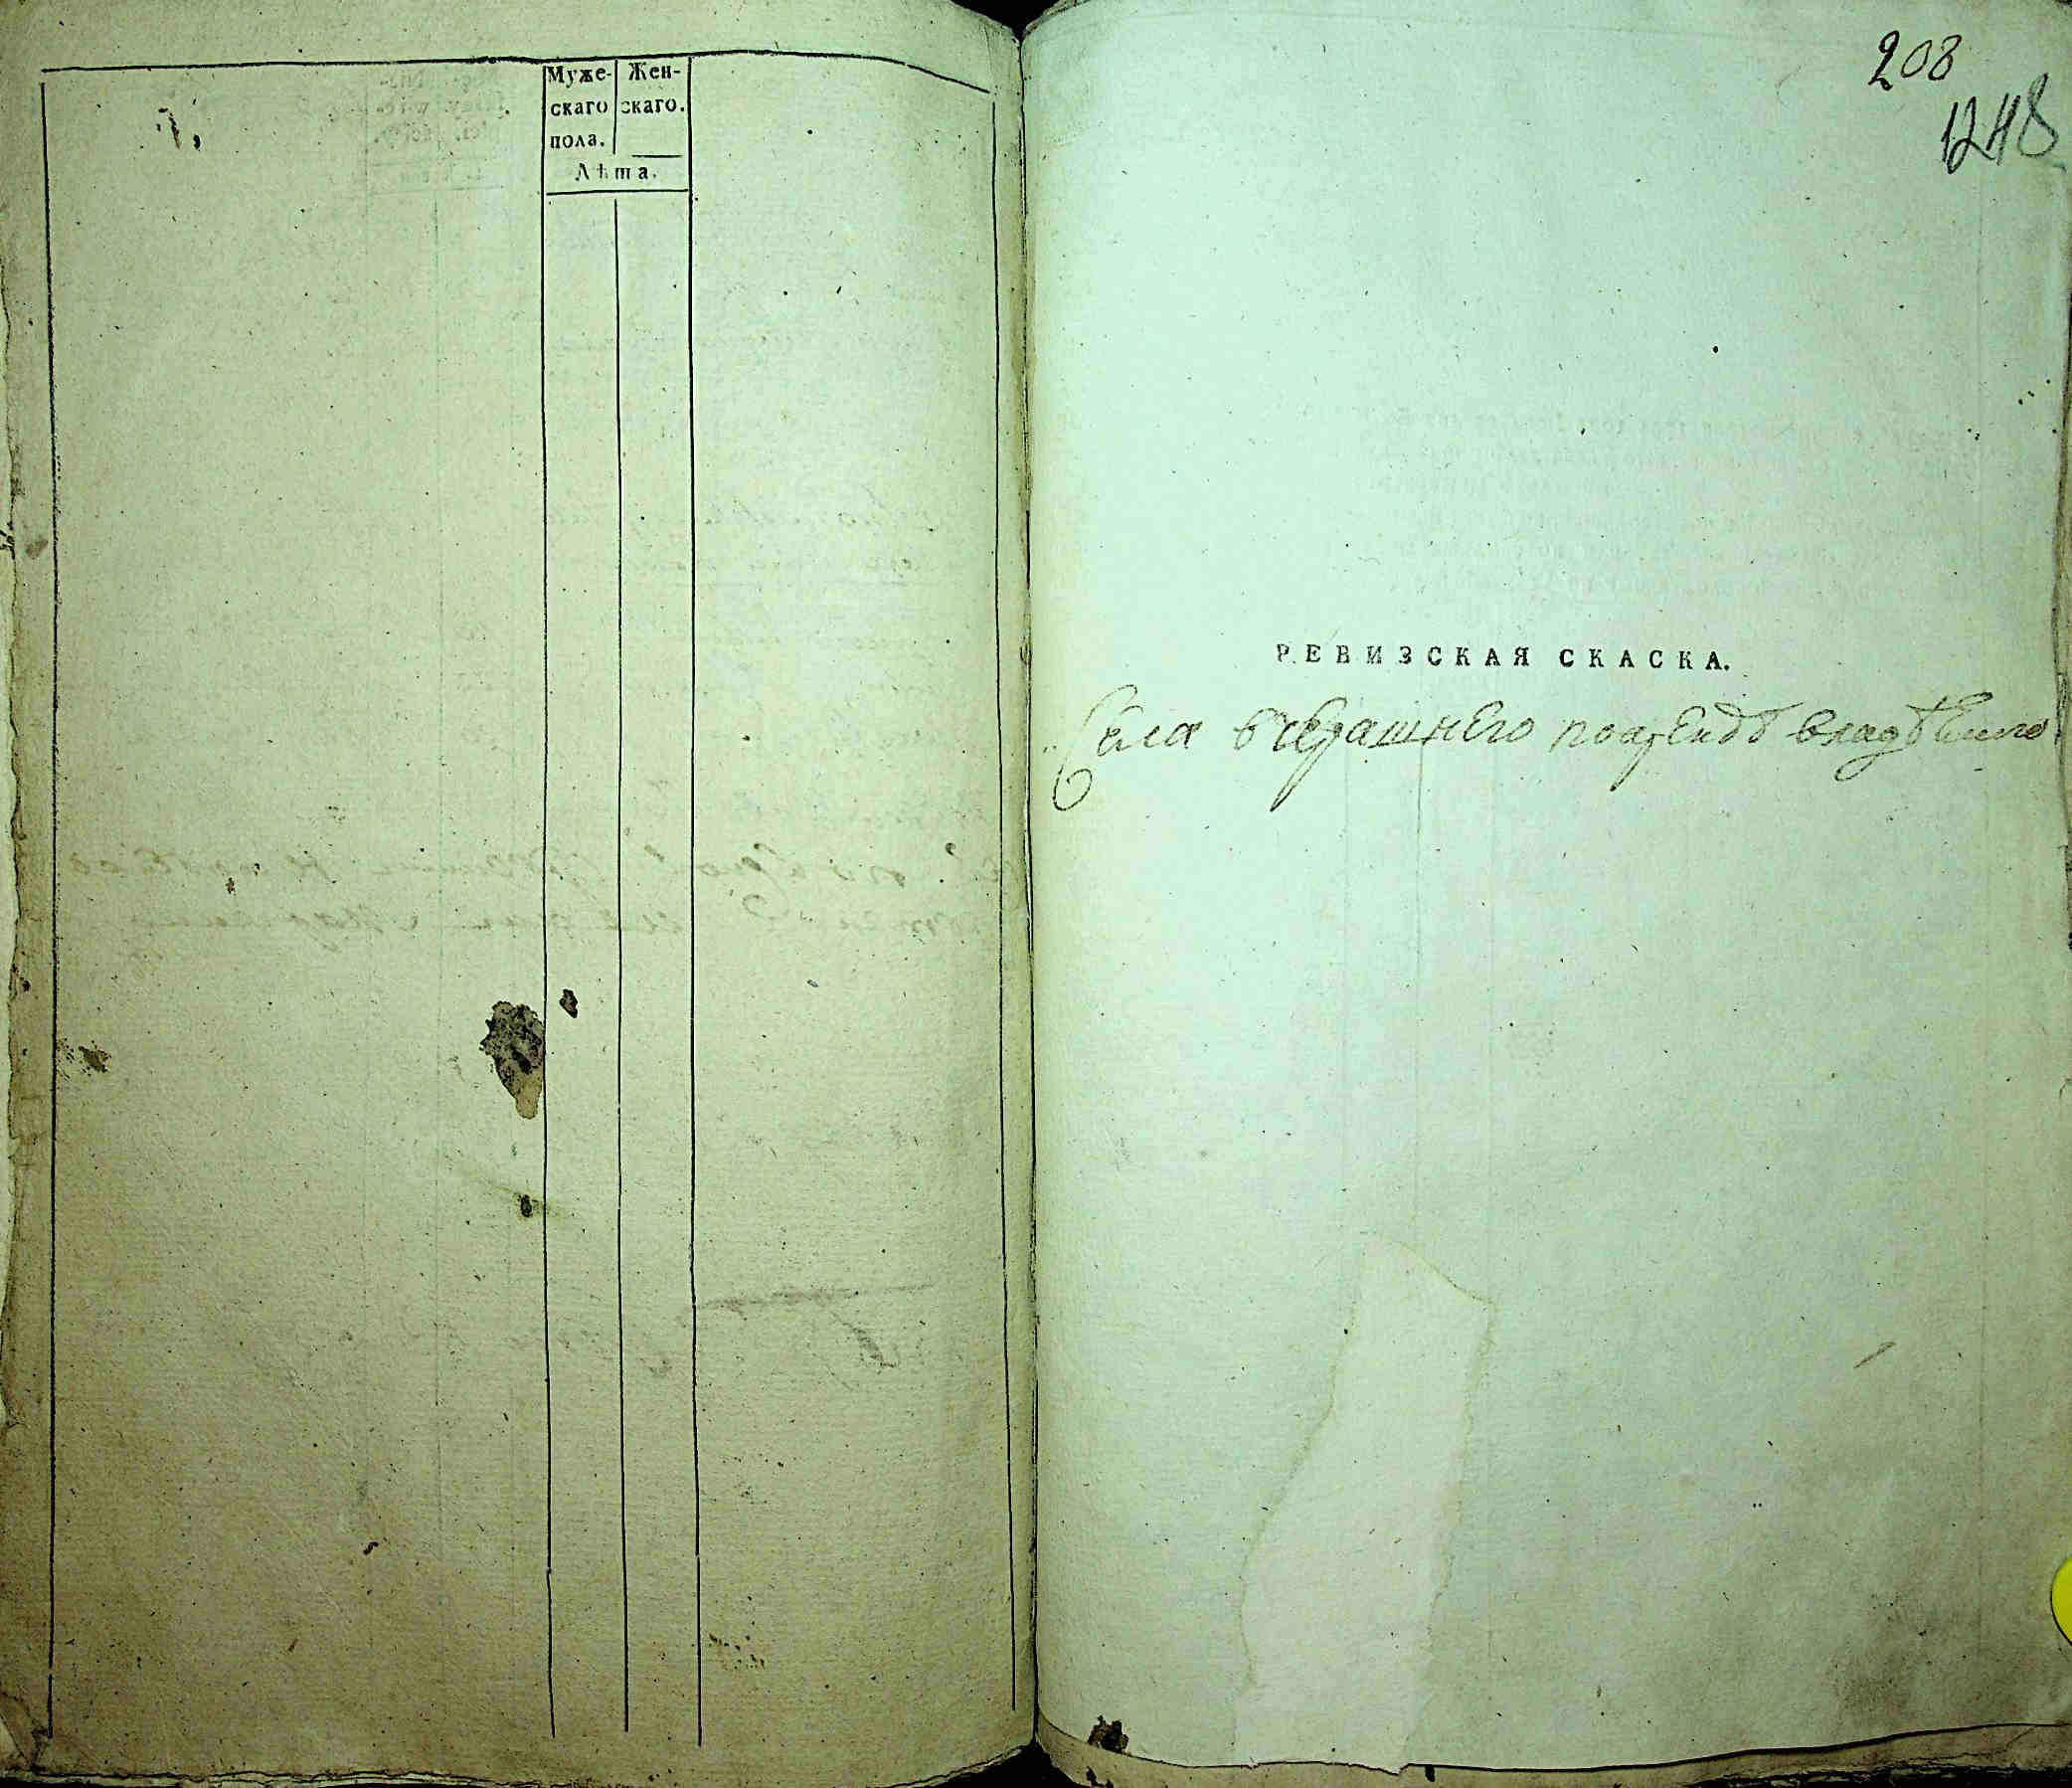 Муже-
скаго
пола.
Жен-
скаго.
Лѣта.
208
1248
РЕВИЗСКАЯ СКАСКА.
Села вчерашнего поарендѣ